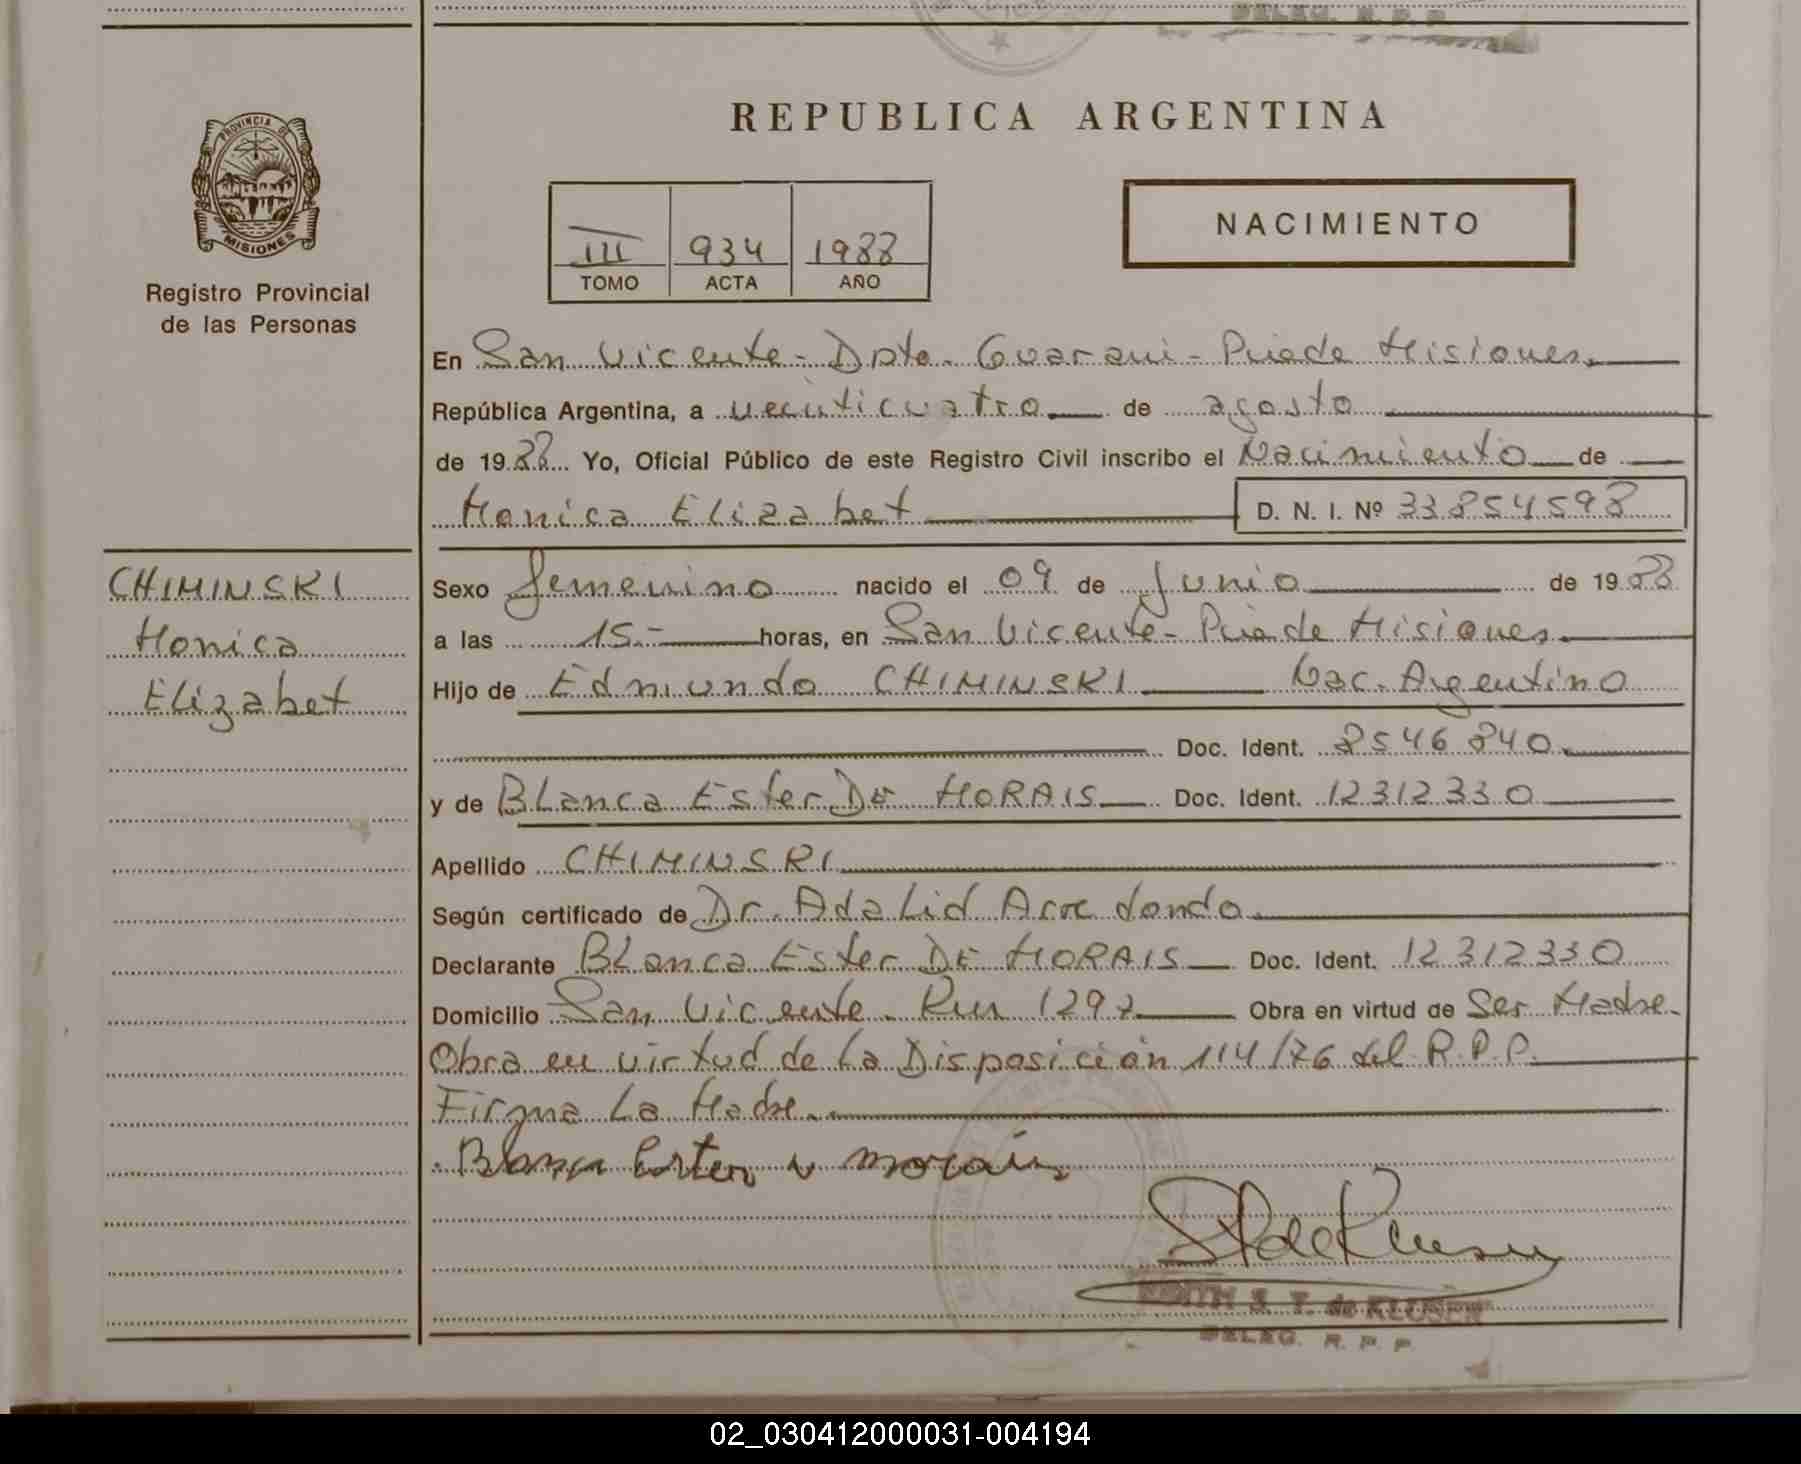 DELEG. R. P. P.
REPUBLICA ARGENTINA
PROVINCIA DE
MISIONES
Registro Provincial
de las Personas
NACIMIENTO
III 934 1988
TOMO ACTA AÑO
En San Vicente - Dpto. Guarani - Pcia de Misiones.
República Argentina, a veinticuatro de agosto
de 1988 Yo, Oficial Público de este Registro Civil inscribo el Nacimiento de
Monica Elizabet D. N. I. Nº 33854598
CHIMINSKI
Monica
Elizabet
Sexo femenino nacido el 09 de Junio de 1988
a las 15.- horas, en San Vicente - Pcia de Misiones.
Hijo de Edmundo CHIMINSKI Nac. Argentino
Doc. Ident. 8546840.
y de Blanca Ester DE MORAIS Doc. Ident. 12312330
Apellido CHIMINSKI
Según certificado de Dr. Adalid Arredondo
Declarante Blanca Ester DE MORAIS Doc. Ident. 12312330
Domicilio San Vicente. Km 1297 Obra en virtud de Ser Madre.
Obra en virtud de La Disposición 114/76 del R.P.P.
Firma La Madre.
Blanca Ester morais
EDITH S. T. de KLUSEN
DELEG. R. P. P.
02_030412000031-004194